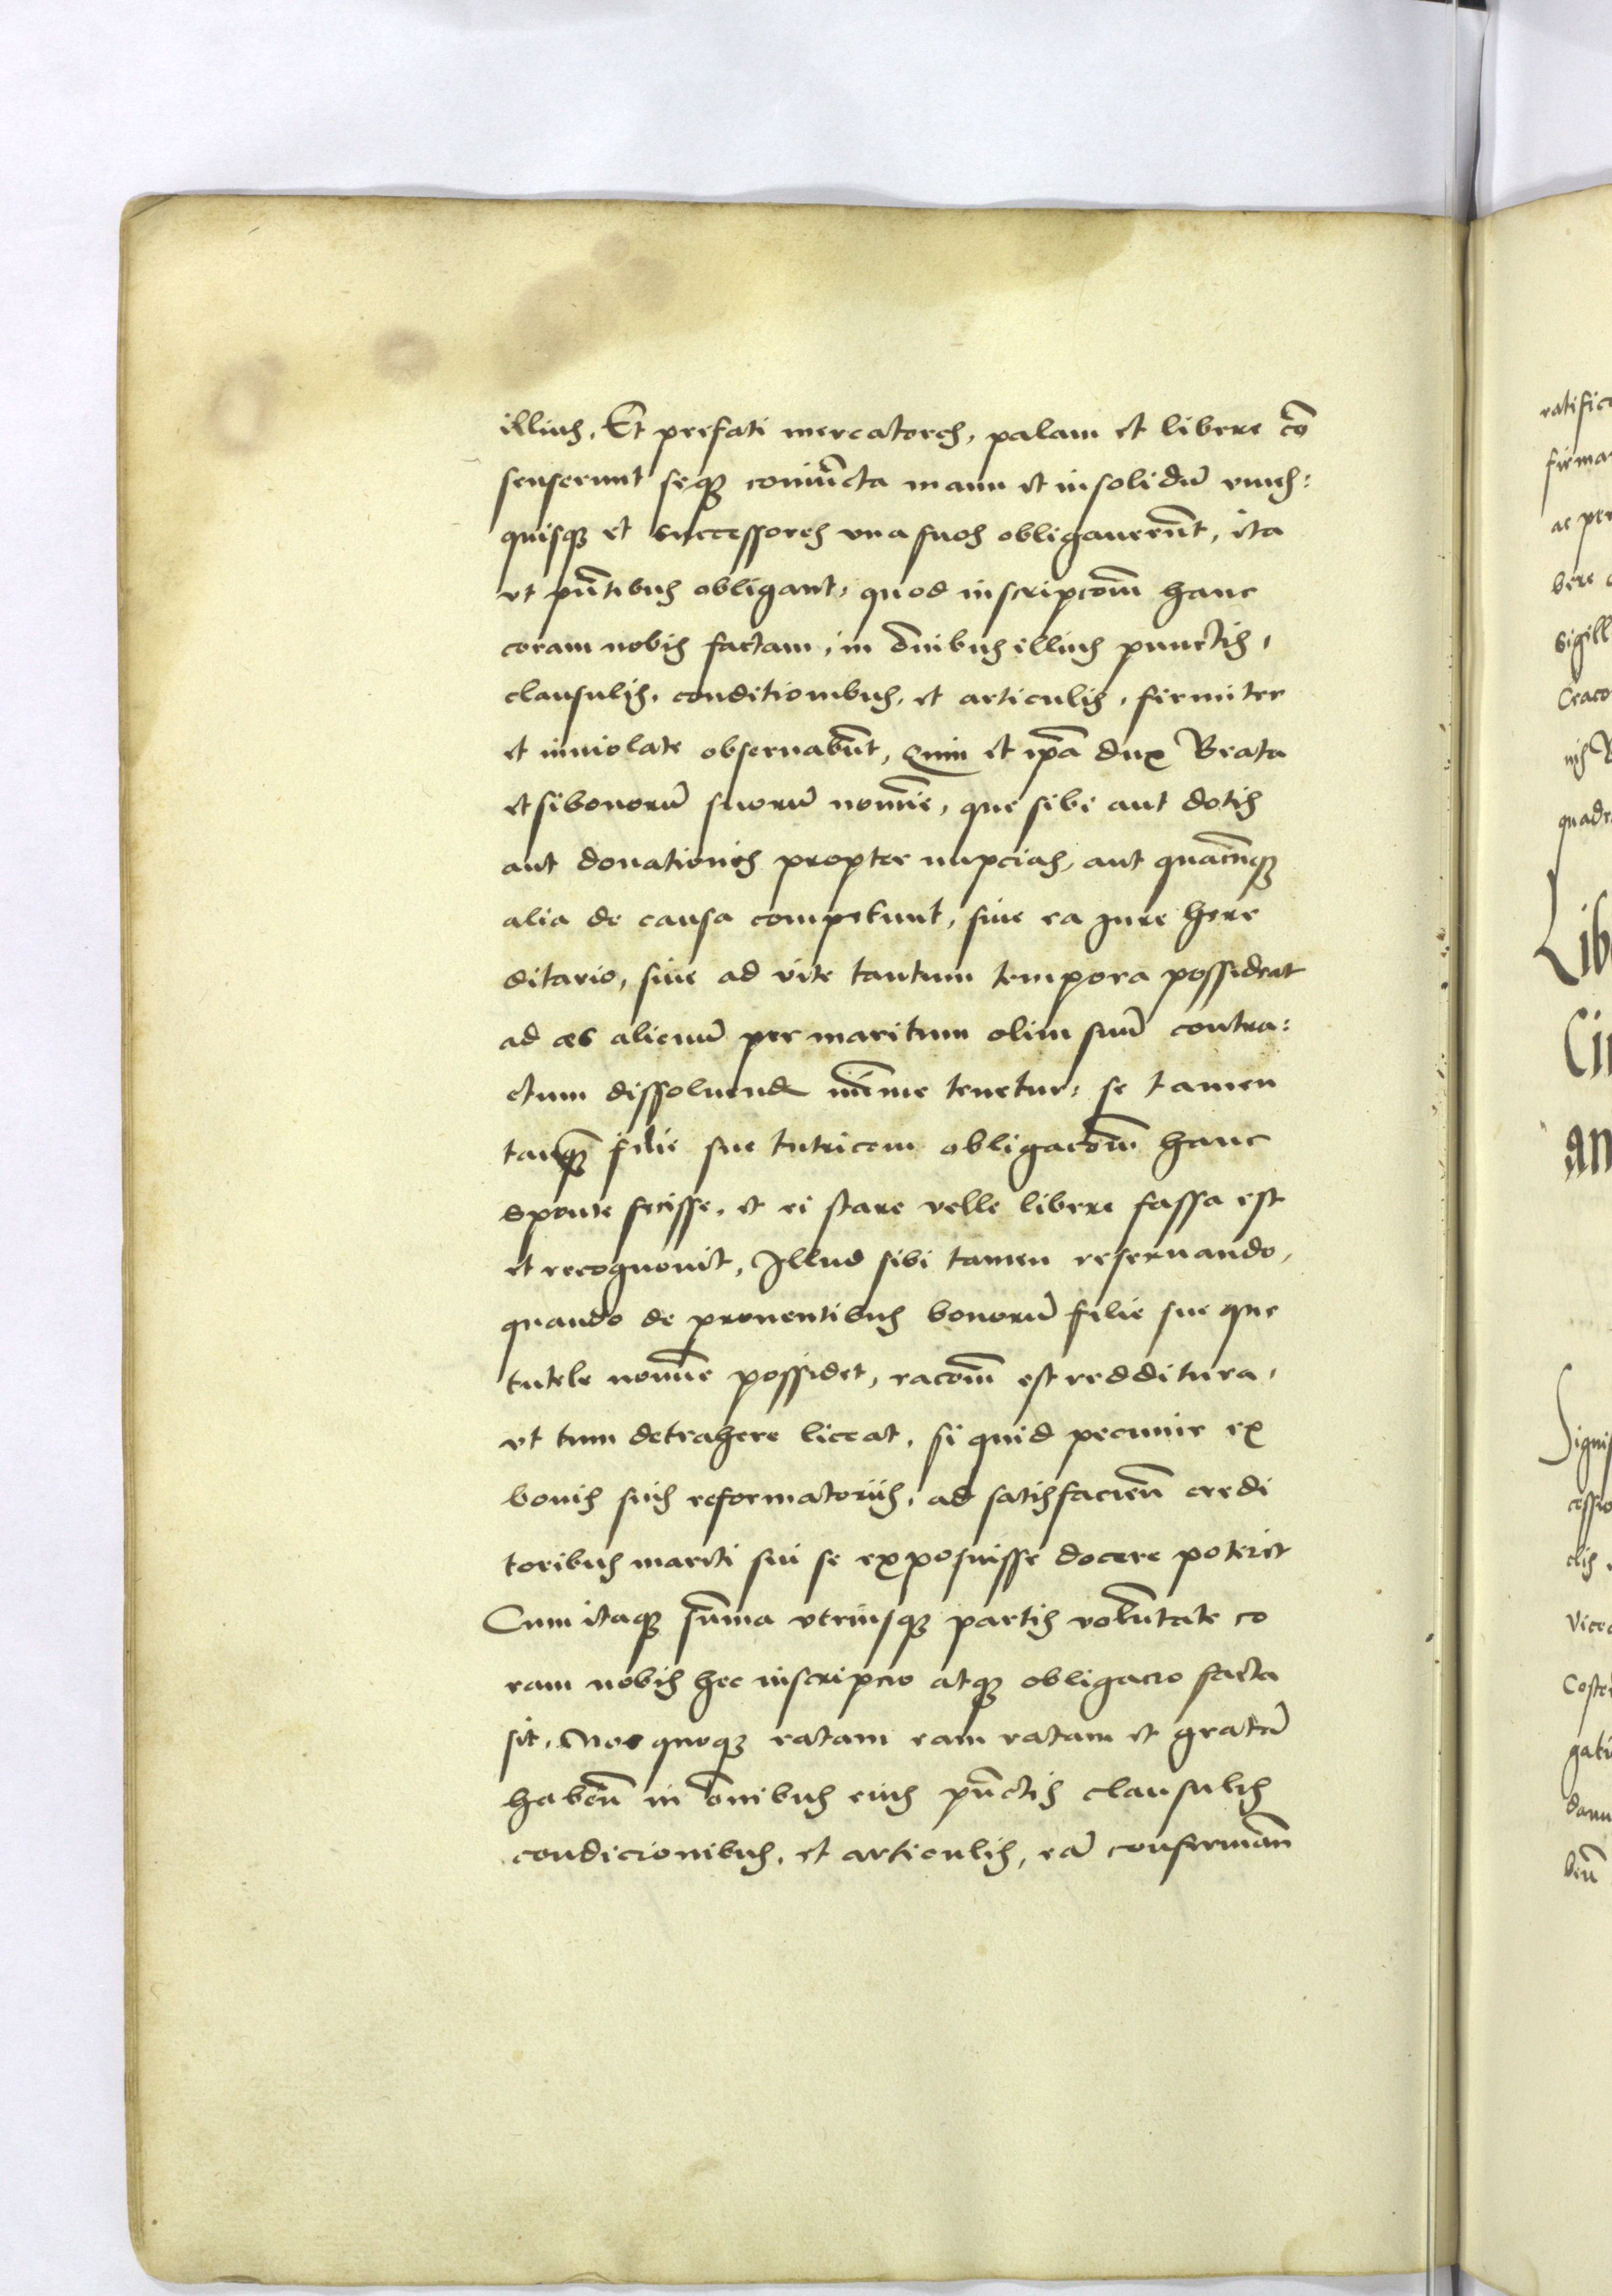 illius, Et prefati mercatores, palam et libere cō
senserunt seqꝫ coniūcta manu et insolidū vnus:
quisqꝫ et successores vna suos obligauerūt, ita
vt pn̄tibus obligant, quod inscripcōm̄ hanc
coram nobis factam, in ōnibus illius punctis,
clausulis, conditionibus, et articulis, firmiter
et inuiolate obseruabūt, Quin et ip̄a dux Beata
etsi bonorū suorū nomīe, que sibi aut dotis
aut donationis propter nupcias, aut quācūqꝫ
alia de causa competunt, siue ea Jure here
ditario, siue ad vite tantum tempora possideat
ad æs alienū per maritum olim suū contra:
ctum dissoluend minīme tenetur, se tamen
tanqꝫ filie sue tutricem obligacōm̄ hanc
sponte fecisse, et ei stare velle libere fassa est
et recognouit, Illud sibi tamen reseruando,
quando de prouentibus bonorū filie sue que
tutele nomīe possidet, racōm̄ est redditura,
vt tum detrahere liceat, si quid pecunie ex
bonis suis reformatoriis, ad satisfacien̄ credi
toribus mariti sui se exposuisse docere poterit
Cum itaqꝫ sūma vtriusqꝫ partis volūntate co
ram nobis hec inscripcio atqꝫ obligacio facta
sit, Nos quoqꝫ ratam eam ratam et gratā
haben̄ in ōnibus eius pūctis clausulis
condicionibus, et articulis, eā confirmān